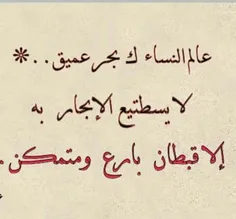 عالم النساء ك بحر عميق ..*
لا يسطتيع الإبحار به
إلا قبطان بارع ومتمكن.